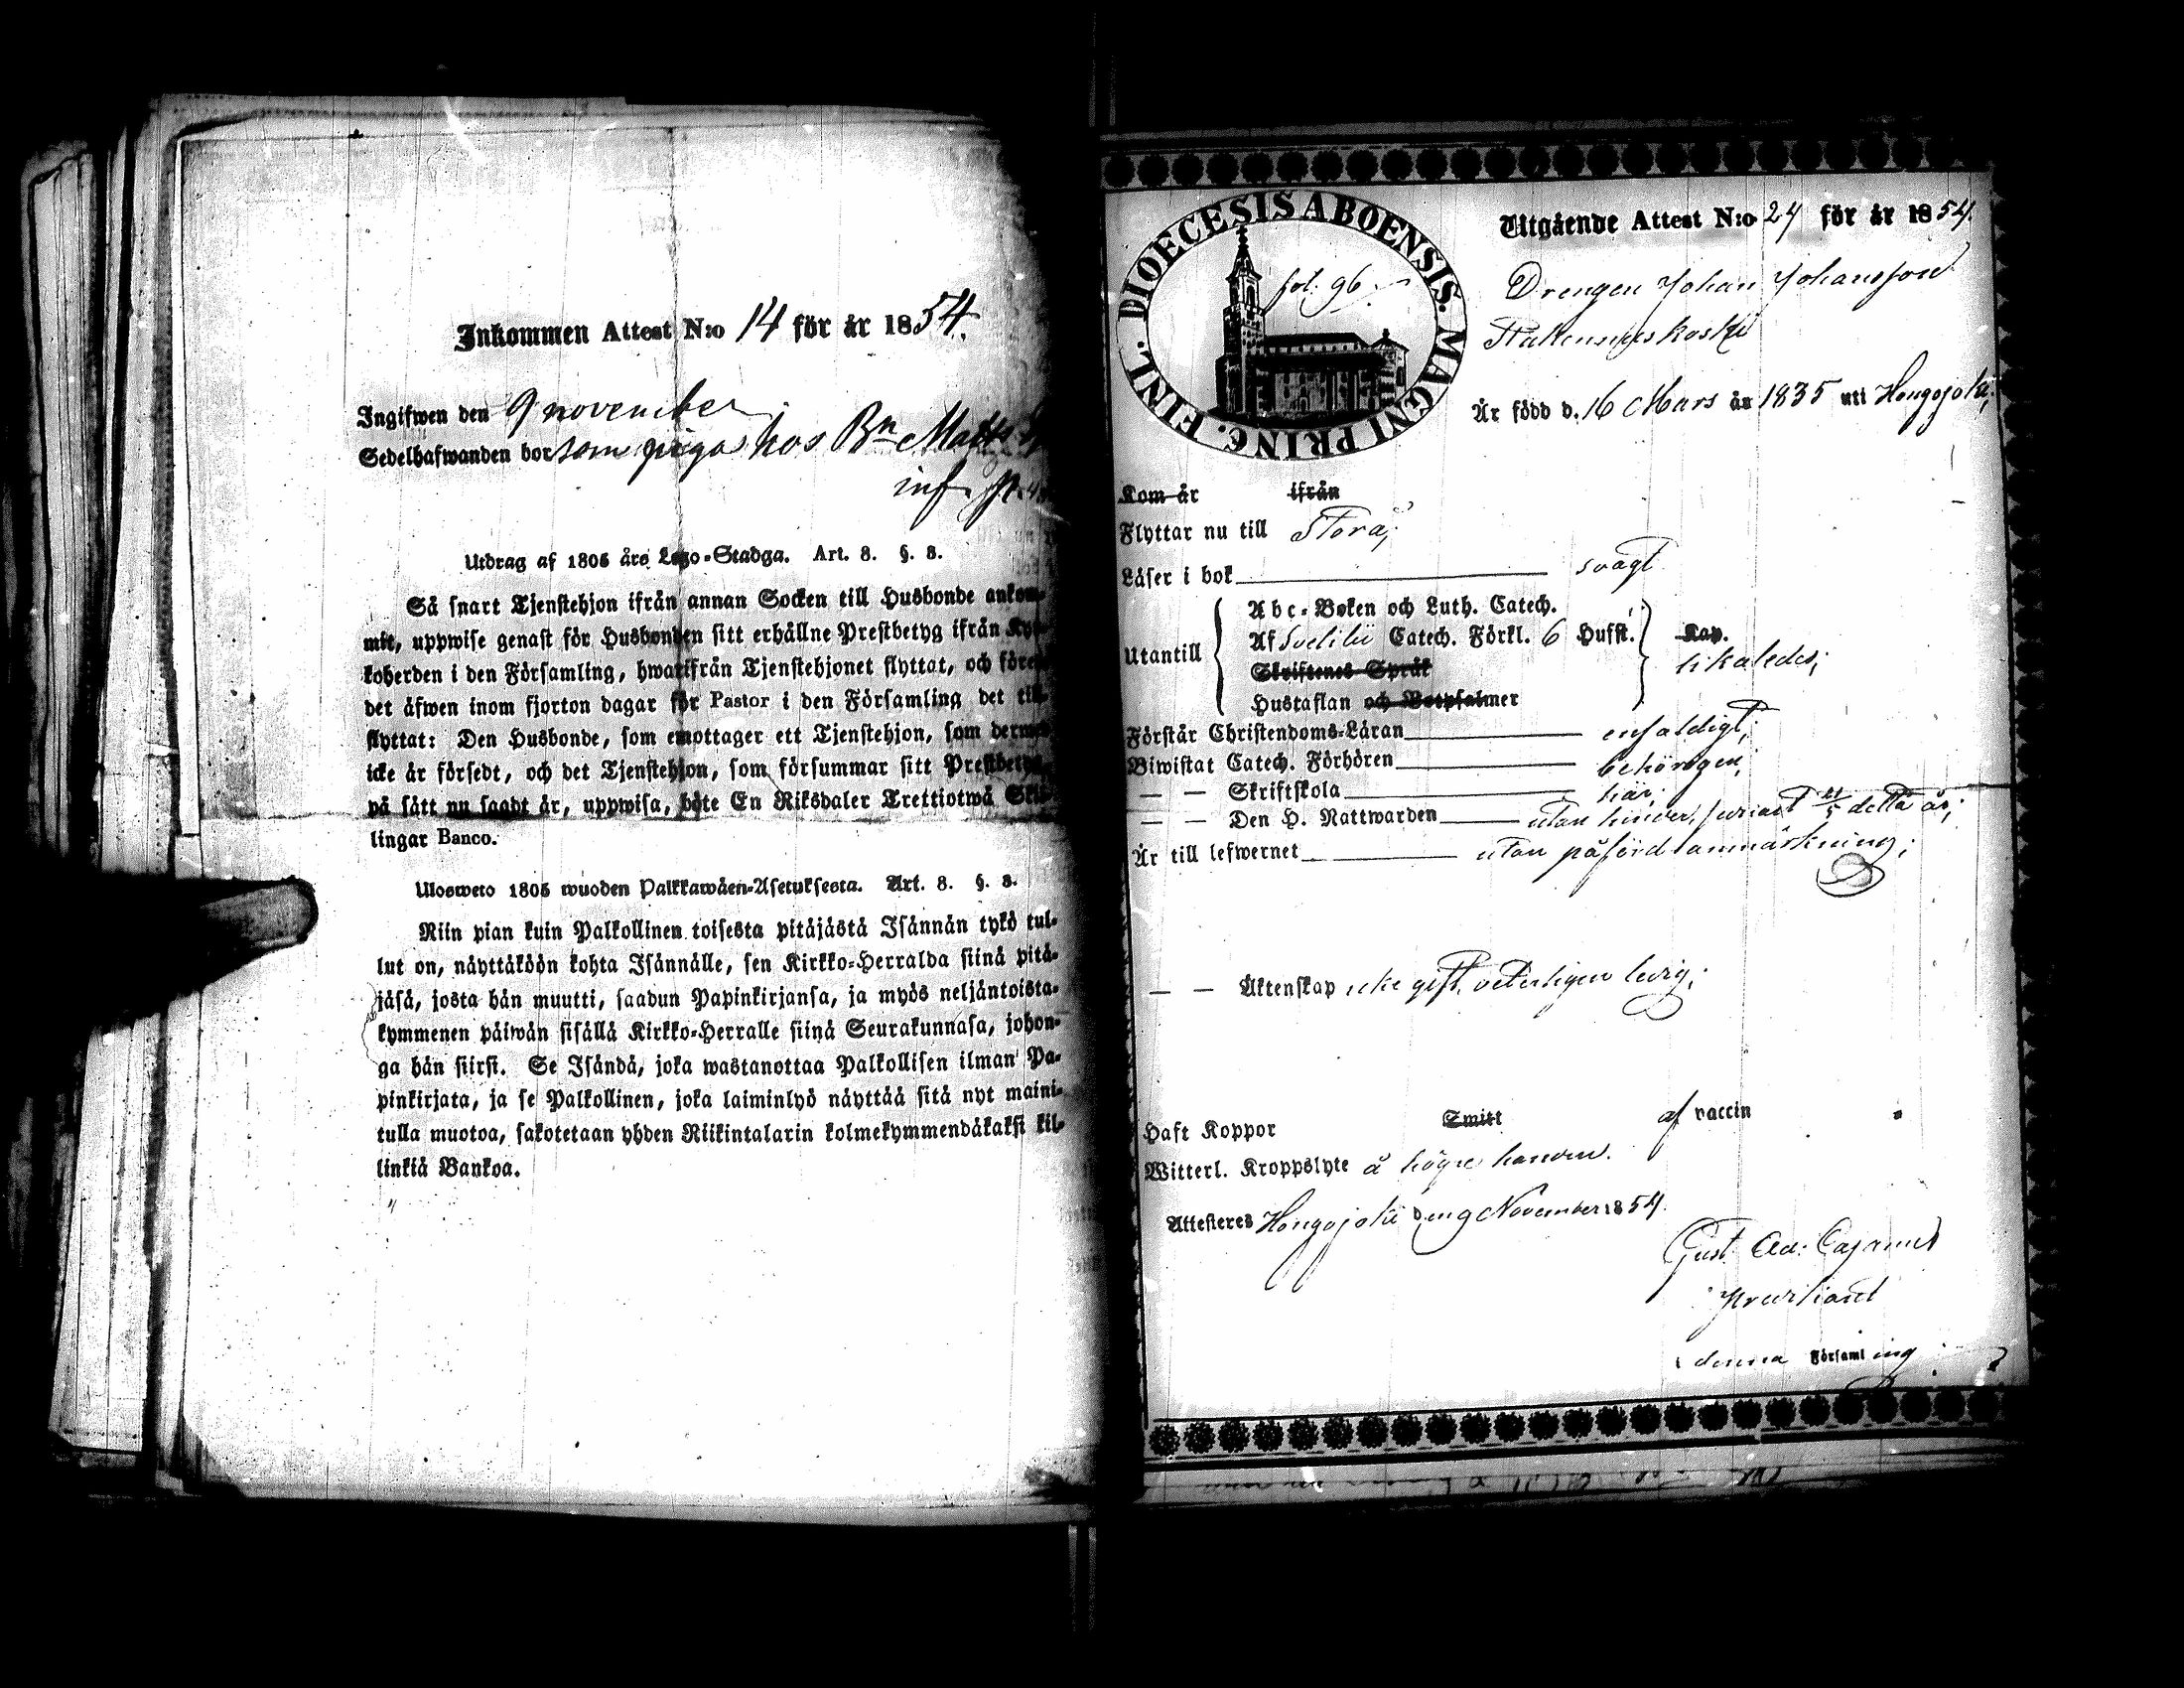 Inkommen Attest N:o 14 för år 1854.
Ingifwen den 9 november.
Sedelhafwanden bor som piga hos Bn Matts
inf.
Utdrag af 1805 års Lego-Stadga. Art. 8. §. 8.
Så snart Tjenstehjon ifrån annan Socken till Husbonde ankom-
mit, uppwise genast för Husbonden sitt erhållne Prestbetyg ifrån Kyr-
koherden i den Församling, hwarifrån Tjenstehjonet flyttat, och förete
det äfwen inom fjorton dagar för Pastor i den Församling det till-
flyttat: Den Husbonde, som emottager ett Tjenstehjon, som dermed
icke är försedt, och det Tjenstehjon, som försummar sitt Prestbetyg,
på sätt nu sagdt är, uppwisa, böte En Riksdaler Trettiotwå Skil-
lingar Banco.
Ulosweto 1805 wuoden Palkkawäen-Asetuksesta. Art. 8. §. 8.
Niin pian kuin Palkollinen toisesta pitäjästä Isännän tykö tul-
lut on, näyttäköön kohta Isännälle, sen Kirkko-Herralda siinä pitä-
jäsä, josta hän muutti, saadun Papinkirjansa, ja myös neljäntoista-
kymmenen päiwän sisällä Kirkko-Herralle siinä Seurakunnasa, johon-
ga hän siirsi. Se Isändä, joka wastanottaa Palkollisen ilman Pa-
pinkirjata, ja se Palkollinen, joka laiminlyö näyttää sitä nyt maini-
tulla muotoa, sakotetaan yhden Riikintalarin kolmekymmendäkaksi kil-
linkiä Bankoa.
DIOECESIS ABOENSIS. MAGNI PRINC. FINL.
fol. 96.
Utgående Attest N:o 24 för år 1854.
Drengen Johan Johansson
Är född d. 16 Mars år 1835 uti Hongojoki;
Kom år ifrån
Flyttar nu till Storå;
Läser i bok svagt
Utantill
Abc-Boken och Luth. Catech.
Af Svebilii Catech. Förkl. 6 Husst.
Kap.
likaledes;
Skriftenes Språk
Hustaflan och Botpsalmer
Förstår Christendoms-Läran enfaldigt;
Biwistat Catech. Förhören behörigen;
— — Skriftskola här;
— — Den H. Nattwarden utan hinder, senast detta år;
Är till lefwernet utan påförd anmärkning;
— — Äktenskap icke gift, veterligen ledig;
Haft Koppor Smitt af vaccin
Witterl. Kroppslyte å högre handen.
Attesteres Hongojoki den 9 November 1854.
Gust. Ad: Cajanus
Predikant
i denna Församling